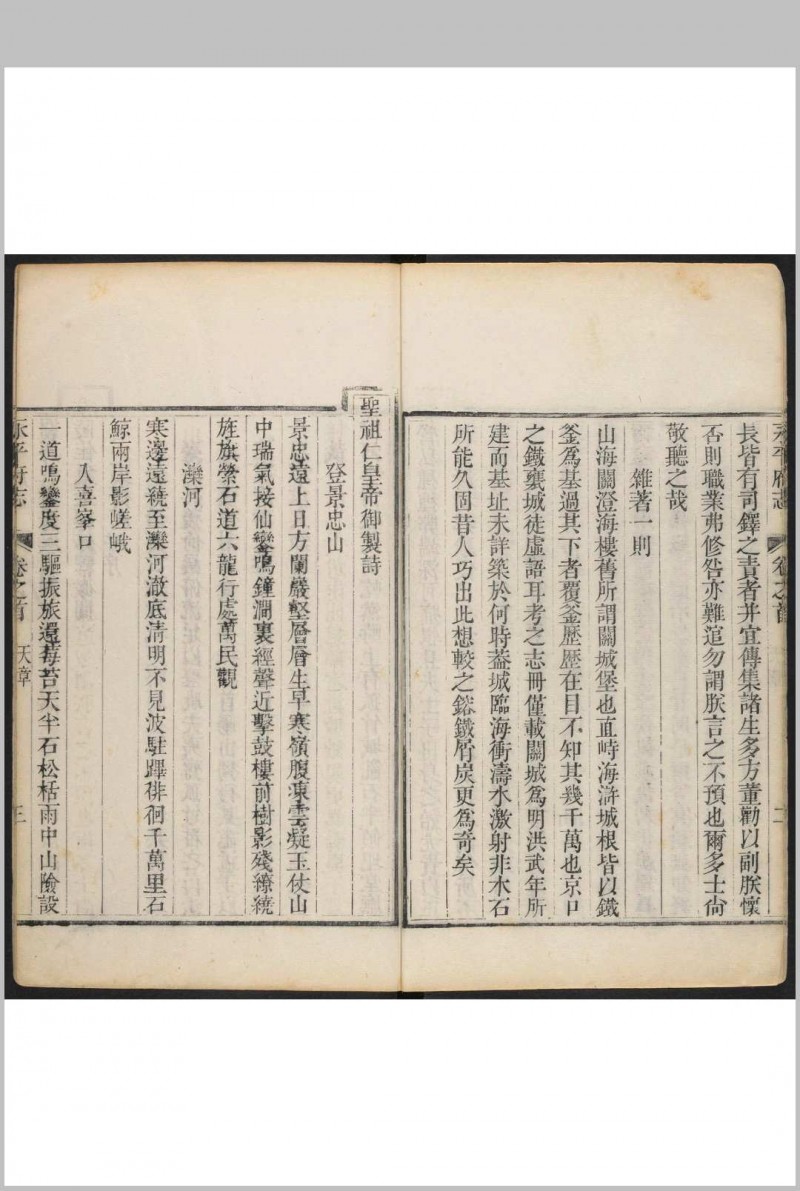 永平府志 卷之首 二
長皆有司鐸之責者并宜傳集諸生多方董勸以副朕懷
否則職業弗修咎亦難逭勿謂朕言之不預也爾多士尙
敬聽之哉
雜著一則
山海關澄海樓舊所謂關城堡也直峙海滸城根皆以鐵
釜爲基過其下者覆釜歷歷在目不知其幾千萬也京口
之鐵甕城徒虛語耳考之志冊僅載關城爲明洪武年所
建而基址未詳築於何時葢城臨海衝濤水激射非木石
所能久固昔人巧出此想較之鎔鐵屑炭更爲奇矣
聖祖仁皇帝御製詩
登景忠山
景忠遠上日方闌巖壑層層生早寒嶺腹凍雲凝玉仗山
中瑞氣接仙鑾鳴鐘澗裏經聲近擊鼓樓前樹影殘繚繞
旌旗縈石道六龍行處萬民觀
灤河
寒邊遠繞至灤河澈底清明不見波駐蹕徘徊千萬里石
鯨兩岸影嵯峨
入喜峯口
一道鳴鑾度三驅振旅還莓苔天半石松栝雨中山險設
永平府志 卷之首 天章 三